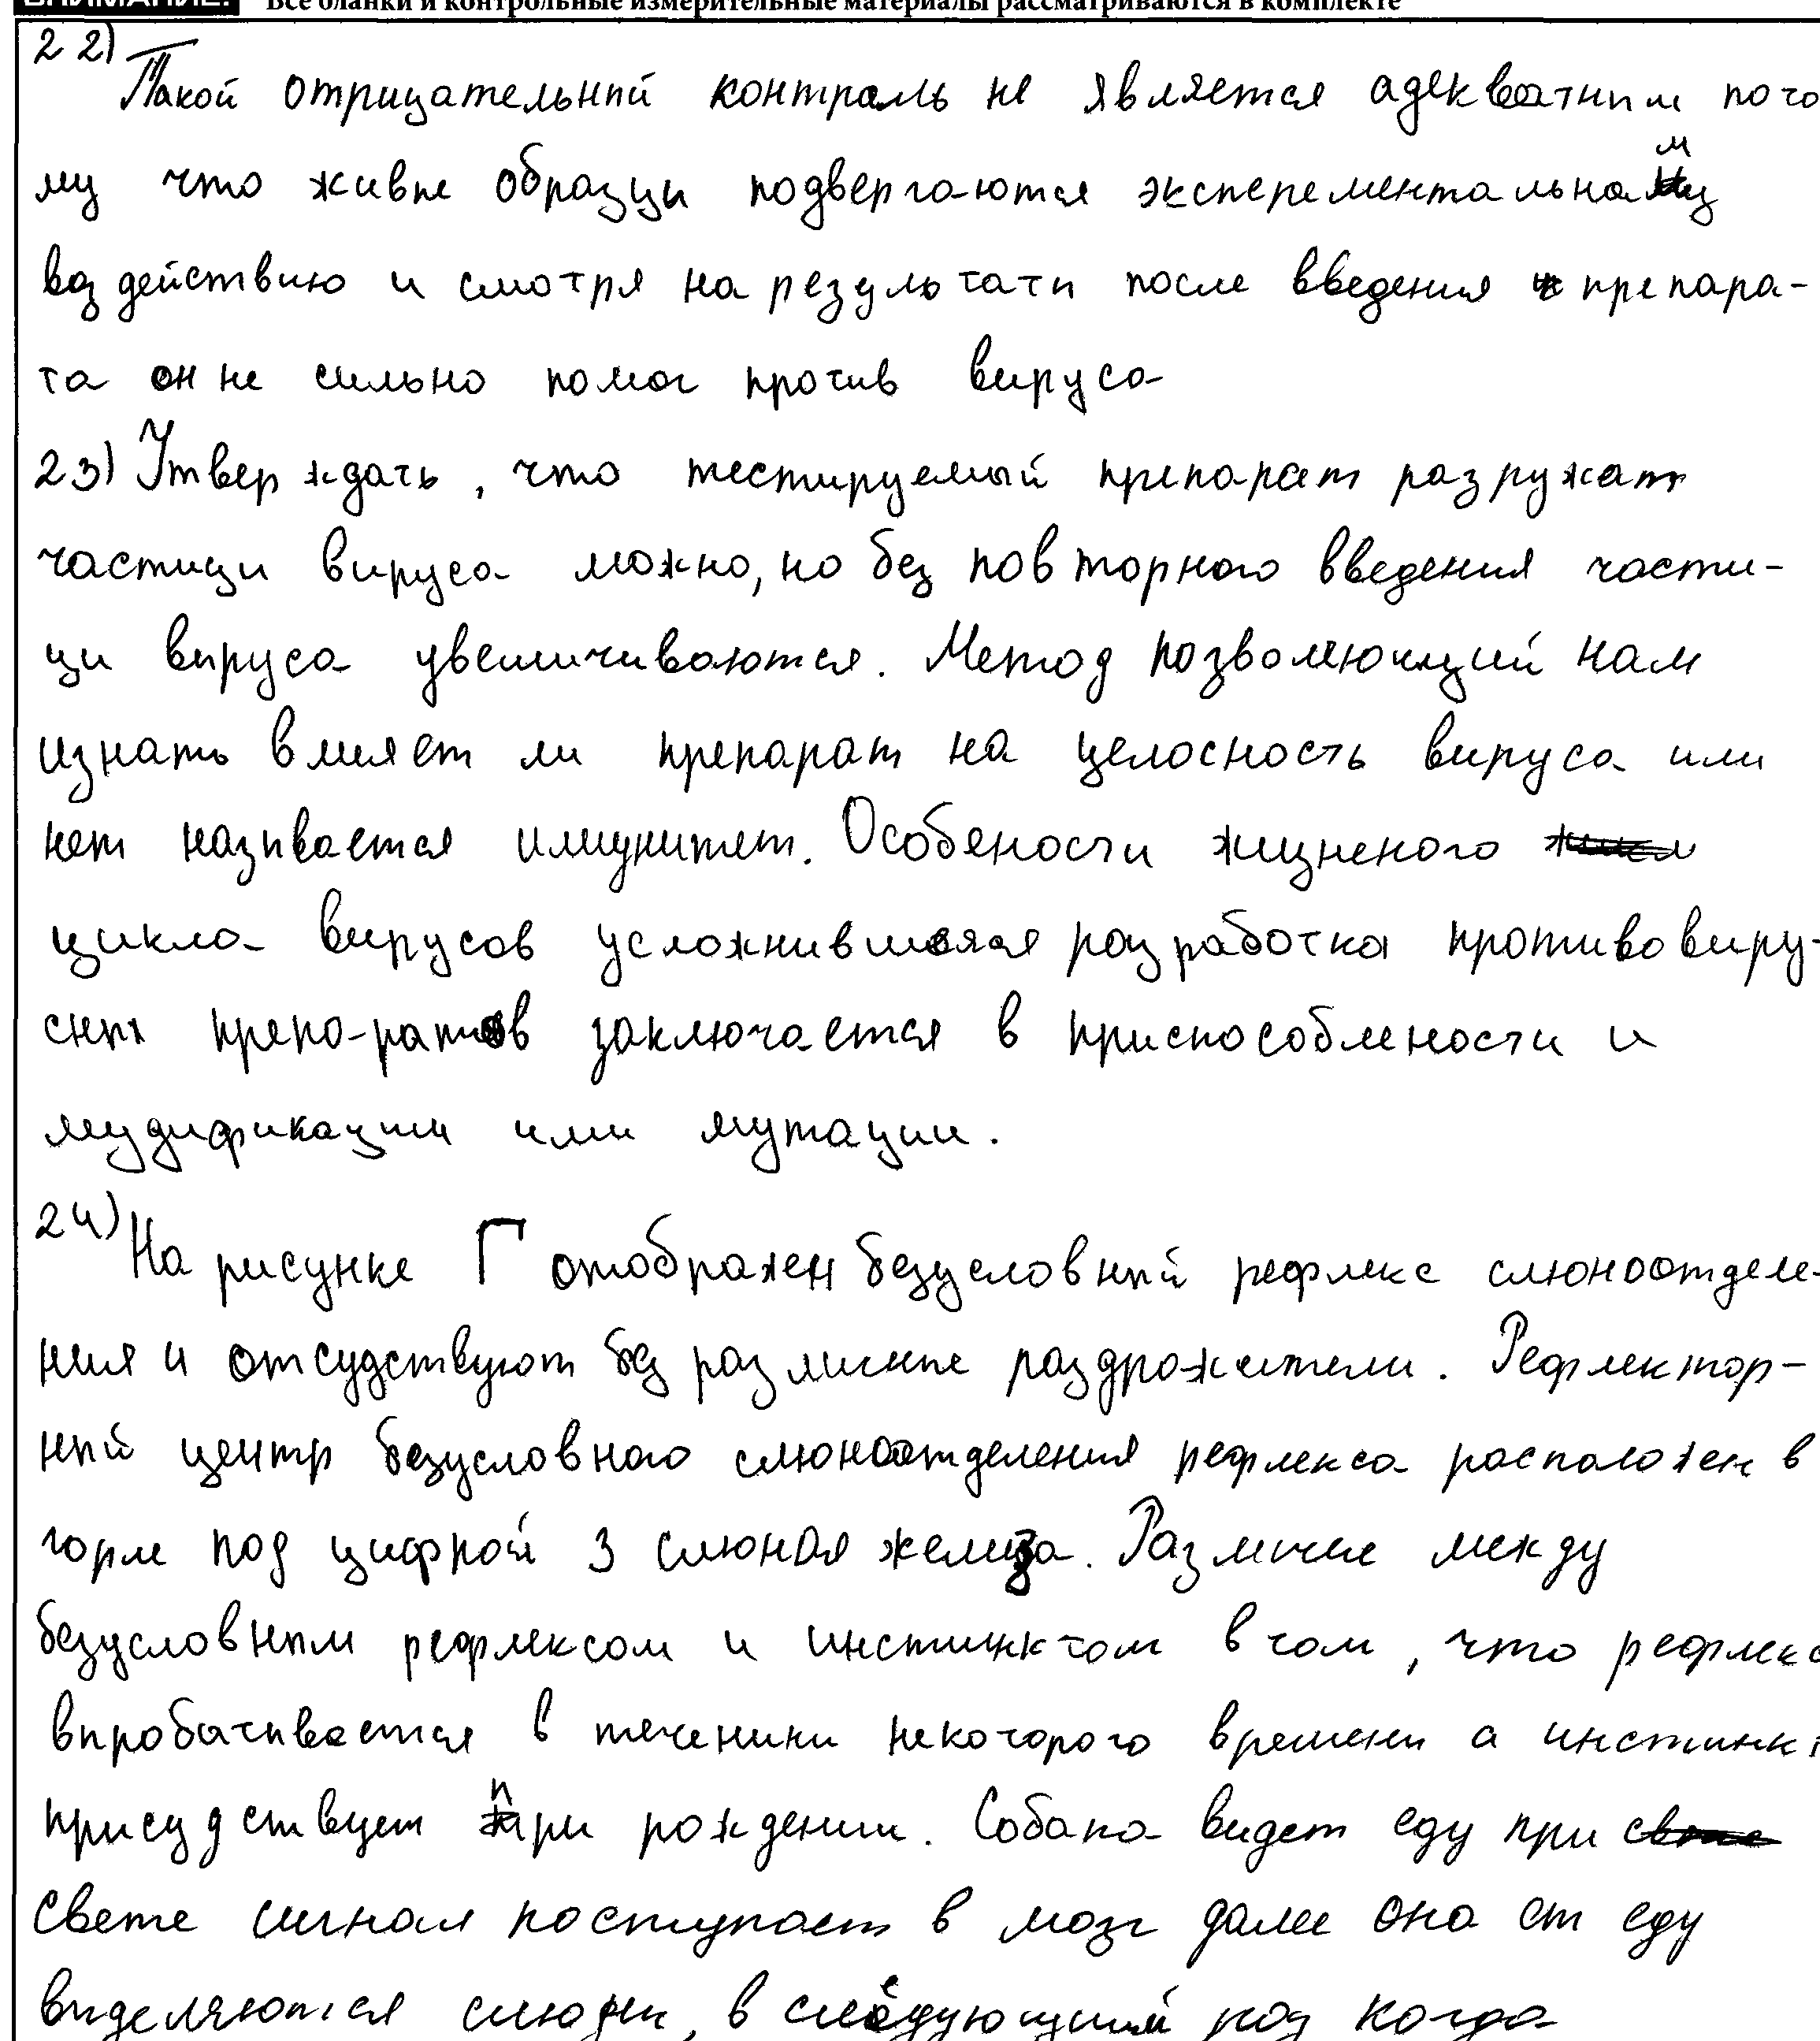 ВНИМАНИЕ! Все бланки и контрольные измерительные материалы рассматриваются в комплекте
22)
Такой отрицательный контроль не является адекватным пото
му что живые образцы подвергаются эксперементальному
воздействию и смотря на результаты после введения препара-
та он не сильно помог против вируса
23) Утверждать, что тестируемый препарат разружат
частицы вируса можно, но без повторного введения части-
цы вируса увеличиваются. Метод позволяющий нам
узнать влияет ли препарат на целосность вируса или
нет называется имунитет. Особености жизненого
цикла вирусов усложнившаяся разработка противовиру-
сных препоратов заключается в приспособлености и
мудификации или мутации.
24)
На рисунке Г отображен безусловный рефлекс слюноотделе-
ния и отсудствуют без различные раздрожители. Рефлектор-
ный центр безусловного слюноотделения рефлекса расположен в
горле под цифрой 3 слюная железа. Различие между
безусловным рефлексом и инстинктом в том, что рефлекс
выробатывается в течении некоторого времени а инстинкт
присудствует при рождении. Собака видет еду при
свете сигнал поступает в мозг далее она ет еду
выделяются слюни, в следующий раз когда